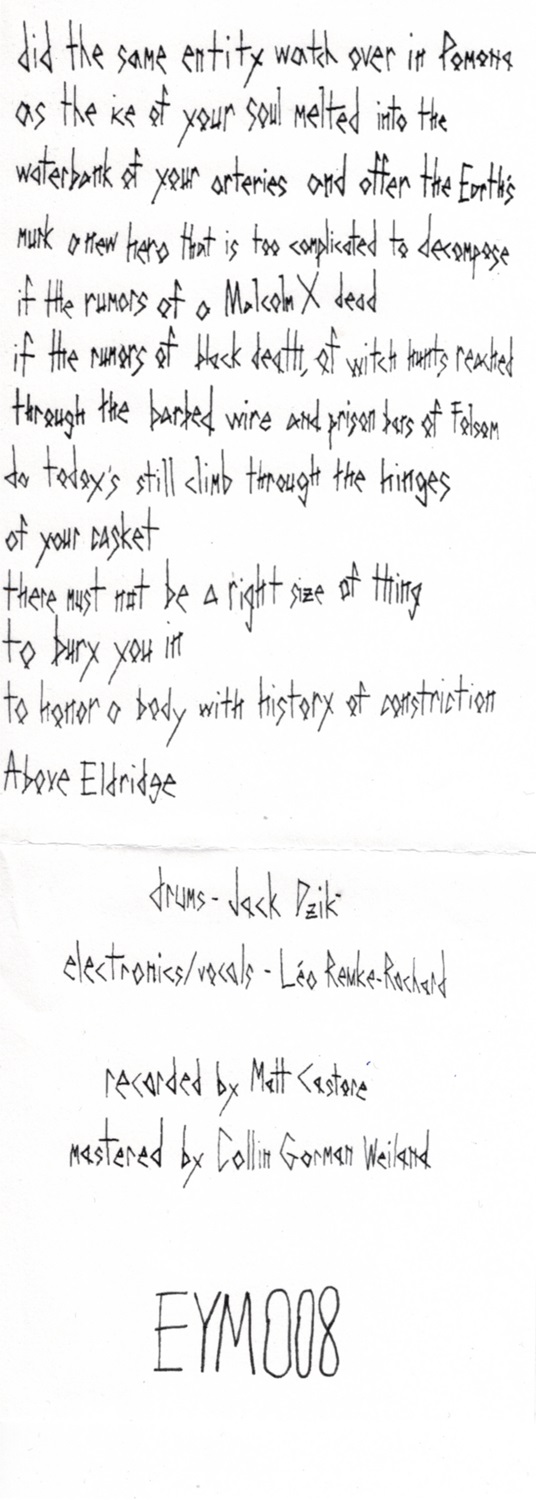 did the same entity watch over in Pomona
as the ice of your soul melted into the
waterbank of your arteries and offer the Earth's
murk a new hero that is too complicated to decompose
if the rumors of a Malcolm X dead
if the rumors of black death, of witch hunts reached
through the barbed wire and prison bars of Folsom
do today's still climb through the hinges
of your casket
there must not be a right size of thing
to bury you in
to honor a body with history of constriction
Above Eldridge
drums - Jack Dzik
electronics/vocals - Léo Remke-Rochard
recorded by Matt Castore
mastered by Collin Gorman Weiland
EYM008